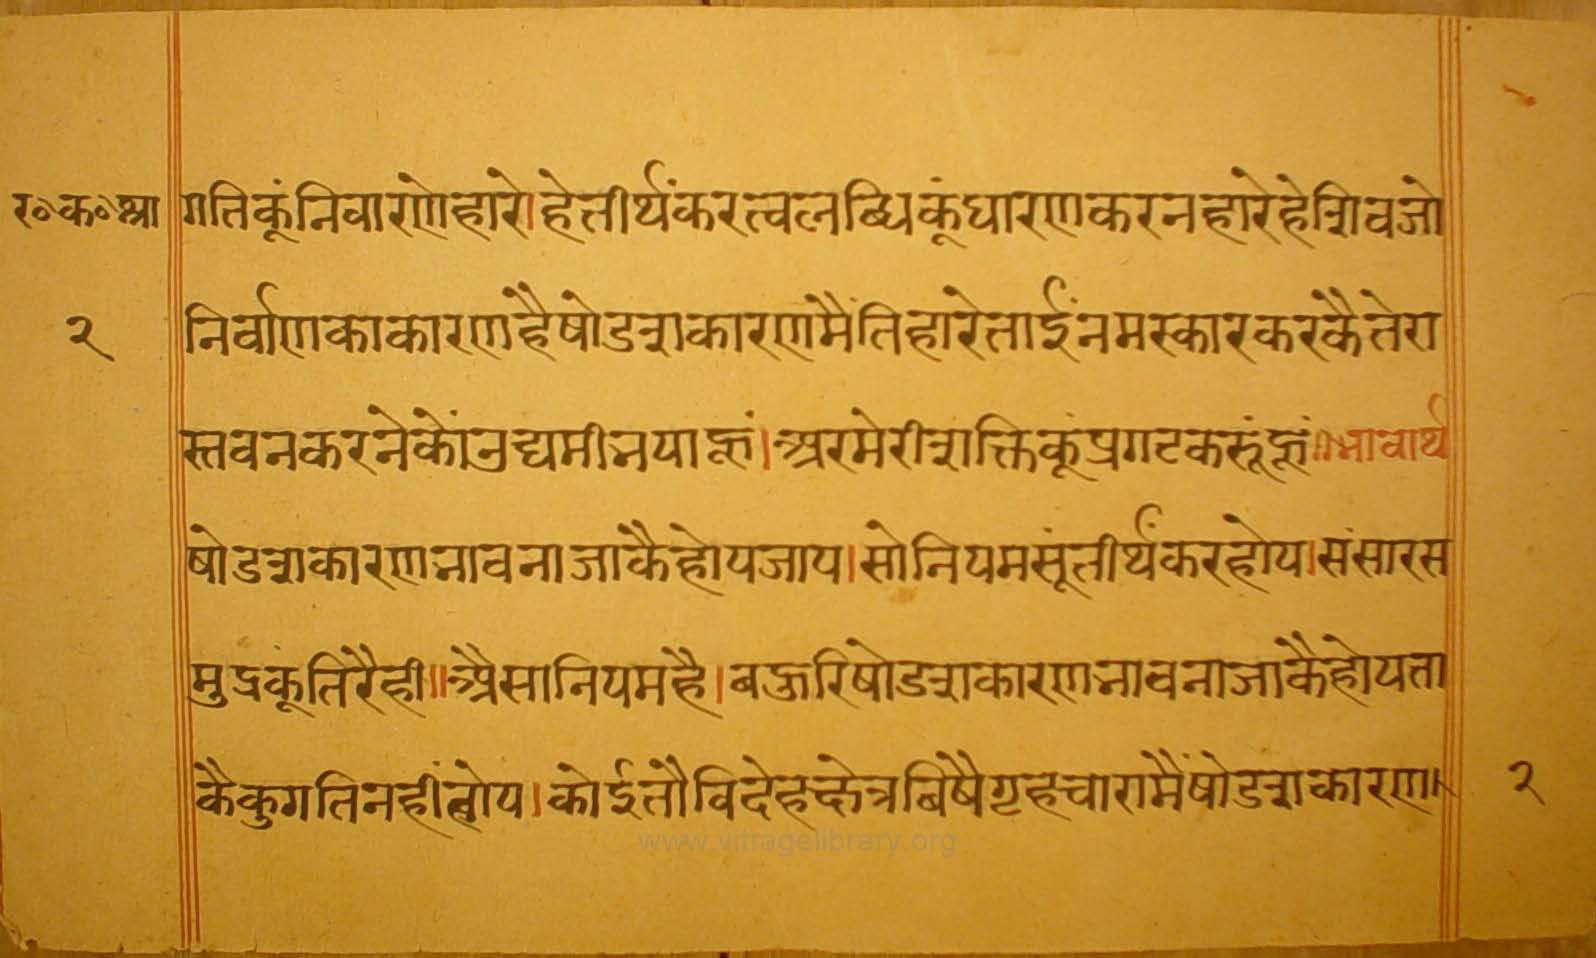 र॰क॰श्रा
गतिकूंनिवारणेहारे।हेतीर्थंकरत्वलब्धिकूंधारणकरनहारेहेशिवजो
२
निर्वाणकाकारणहैषोडशकारणमैंतिहारेताईंनमस्कारकरकैतेरा
स्तवनकरनेकौंउद्यमीभयाहूं।अरमेरीशक्तिकूंप्रगटकरूंहूं॥भावार्थ
षोडशकारणभावनाजाकैहोयजाय।सोनियमसूंतीर्थंकरहोय।संसारस
मुद्रकूंतिरैही॥ऐसानियमहै।बहुरिषोडशकारणभावनाजाकैहोयता
कैकुगतिनहींहोय।कोईतौविदेहक्षेत्रबिषैगृहचारामैंषोडशकारण॥
२
www.vitragelibrary.org